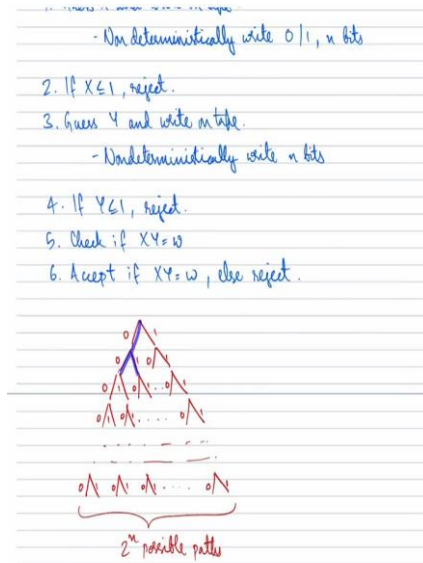 - Nondeterministically write 0/1, n bits
2. If X≤1, reject.
3. Guess Y and write on tape.
- Nondeterministically write n bits
4. If Y≤1, reject.
5. Check if XY=w
6. Accept if XY=w, else reject.
0 1
0 1 0 1
0 1 0 1 ... 0 1
0 1 0 1 .... 0 1
0 1 0 1 0 1 .... 0 1
2ⁿ possible paths